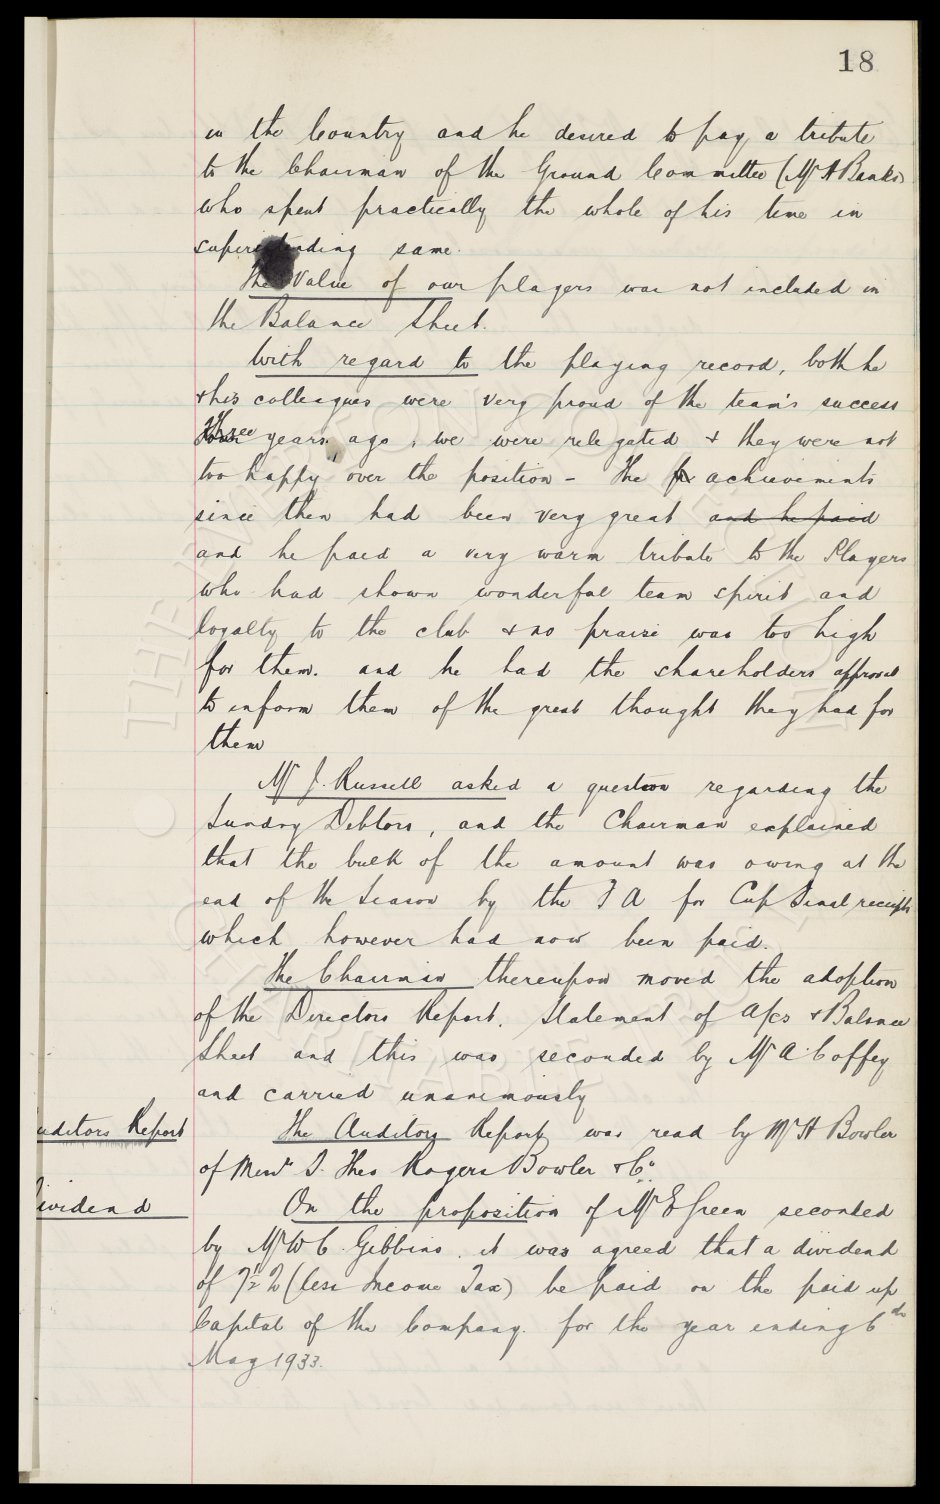 18
in the Country and he desired to pay a tribute
to the Chairman of the Ground Committee (Mr A Banks)
who spent practically the whole of his time in
superintending same.
The Value of our players was not included in
the Balance Sheet.
With regard to the playing record, both he
& his colleagues were very proud of the team's success
Three years ago, we were relegated & they were not
too happy over the position - The achievements
since then had been very great and he paid
and he paid a very warm tribute to the Players
who had shown wonderful team spirit and
loyalty to the club & no praise was too high
for them. and he had the shareholders approval
to inform them of the great thought they had for
them
Mr J. Russell asked a question regarding the
Sundry Debtors, and the Chairman explained
that the bulk of the amount was owing at the
end of the Season by the F A for Cup Final receipts
which however had now been paid.
The Chairman thereupon moved the adoption
of the Directors Report, Statement of A/cs & Balance
Sheet and this was seconded by Mr A. Coffey
and carried unanimously
uditors Report
The Auditors Report was read by Mr H Bowler
of Messrs J. Theo Rogers Bowler & Co.
ividend
On the proposition of Mr E Green seconded
by Mr W C. Gibbins, it was agreed that a dividend
of 7½ % (less Income Tax) be paid on the paid up
Capital of the Company. for the year ending 6th
May 1933.
THE EVERTON